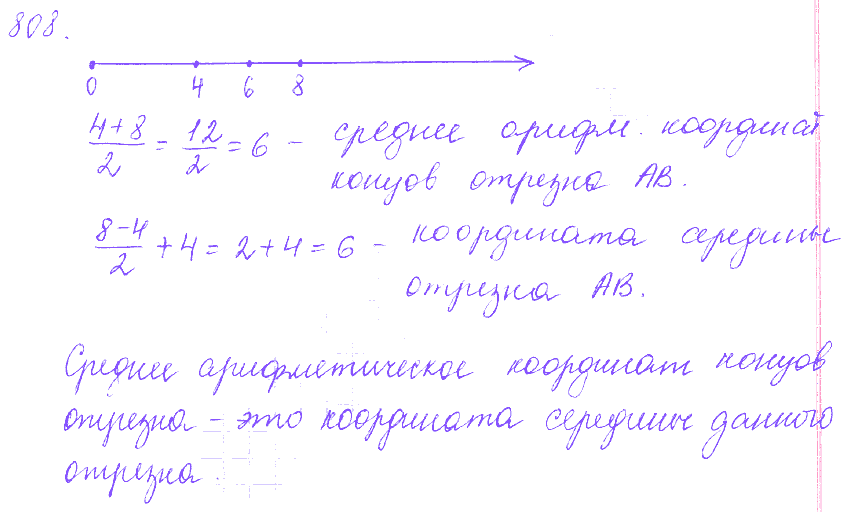 808.
0 4 6 8
4+8/2 = 12/2 = 6 – среднее арифм. координат
концов отрезка AB.
8-4/2 + 4 = 2 + 4 = 6 – координата середины
отрезка AB.
Среднее арифметическое координат концов
отрезка – это координата середины данного
отрезка.